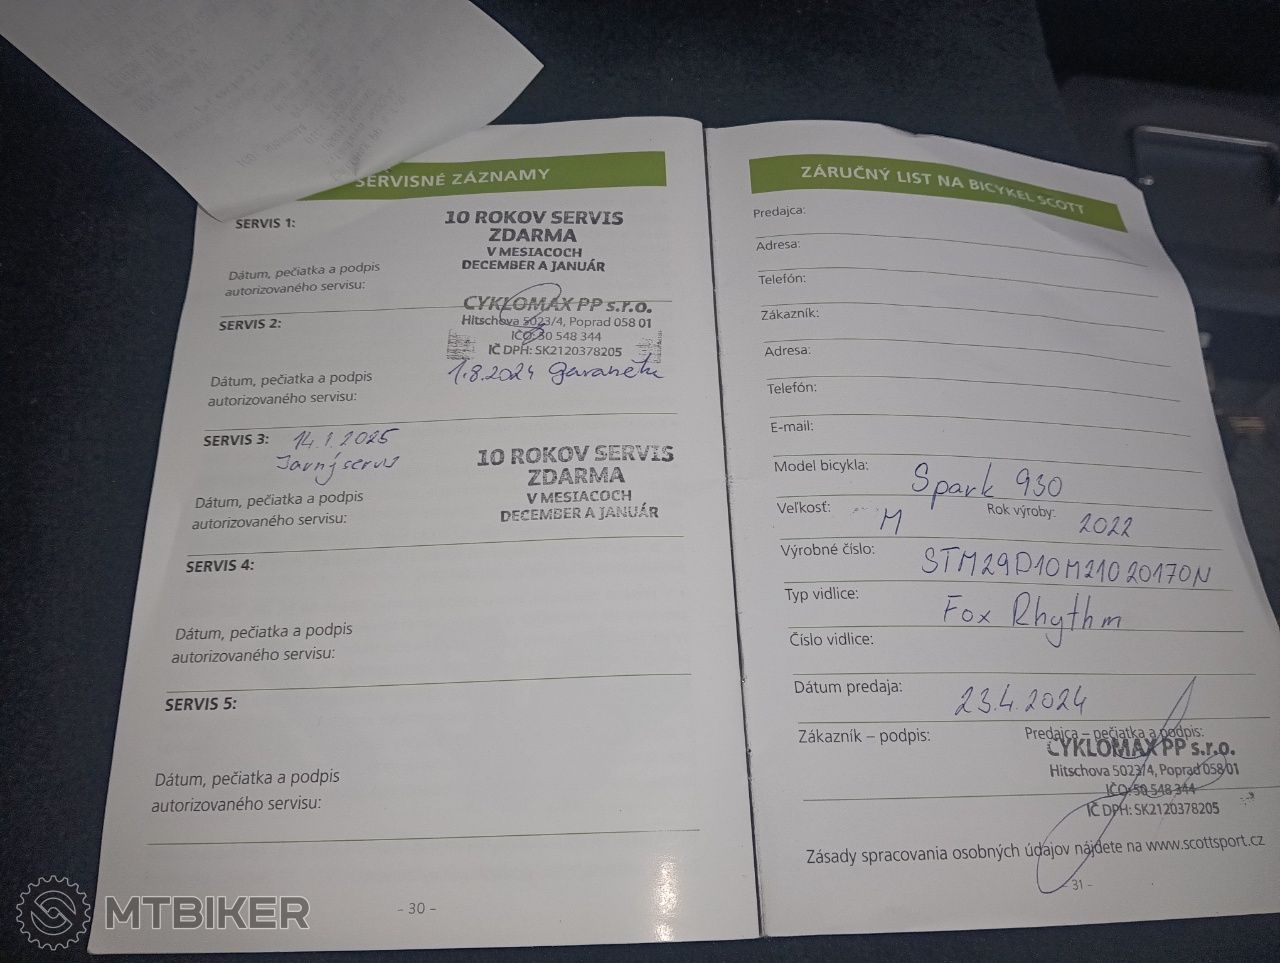 SERVISNÉ ZÁZNAMY
SERVIS 1:
10 ROKOV SERVIS
ZDARMA
V MESIACOCH
DECEMBER A JANUÁR
Dátum, pečiatka a podpis
autorizovaného servisu:
CYKLOMAX PP s.r.o.
Hitschova 5023/4, Poprad 058 01
IČO: 50 548 344
IČ DPH: SK2120378205
SERVIS 2:
1.8.2024
Dátum, pečiatka a podpis
autorizovaného servisu:
SERVIS 3: 14.1.2025
Jarný servis
10 ROKOV SERVIS
ZDARMA
V MESIACOCH
DECEMBER A JANUÁR
Dátum, pečiatka a podpis
autorizovaného servisu:
SERVIS 4:
Dátum, pečiatka a podpis
autorizovaného servisu:
SERVIS 5:
Dátum, pečiatka a podpis
autorizovaného servisu:
- 30 -
ZÁRUČNÝ LIST NA BICYKEL SCOTT
Predajca:
Adresa:
Telefón:
Zákazník:
Adresa:
Telefón:
E-mail:
Model bicykla: Spark 930
Veľkosť: M Rok výroby: 2022
Výrobné číslo: STM29D10M21020170N
Typ vidlice: Fox Rhythm
Číslo vidlice:
Dátum predaja: 23.4.2024
Zákazník – podpis: Predajca – pečiatka a podpis:
CYKLOMAX PP s.r.o.
Hitschova 5023/4, Poprad 058 01
IČO: 50 548 344
IČ DPH: SK2120378205
Zásady spracovania osobných údajov nájdete na www.scottsport.cz
- 31 -
MTBIKER